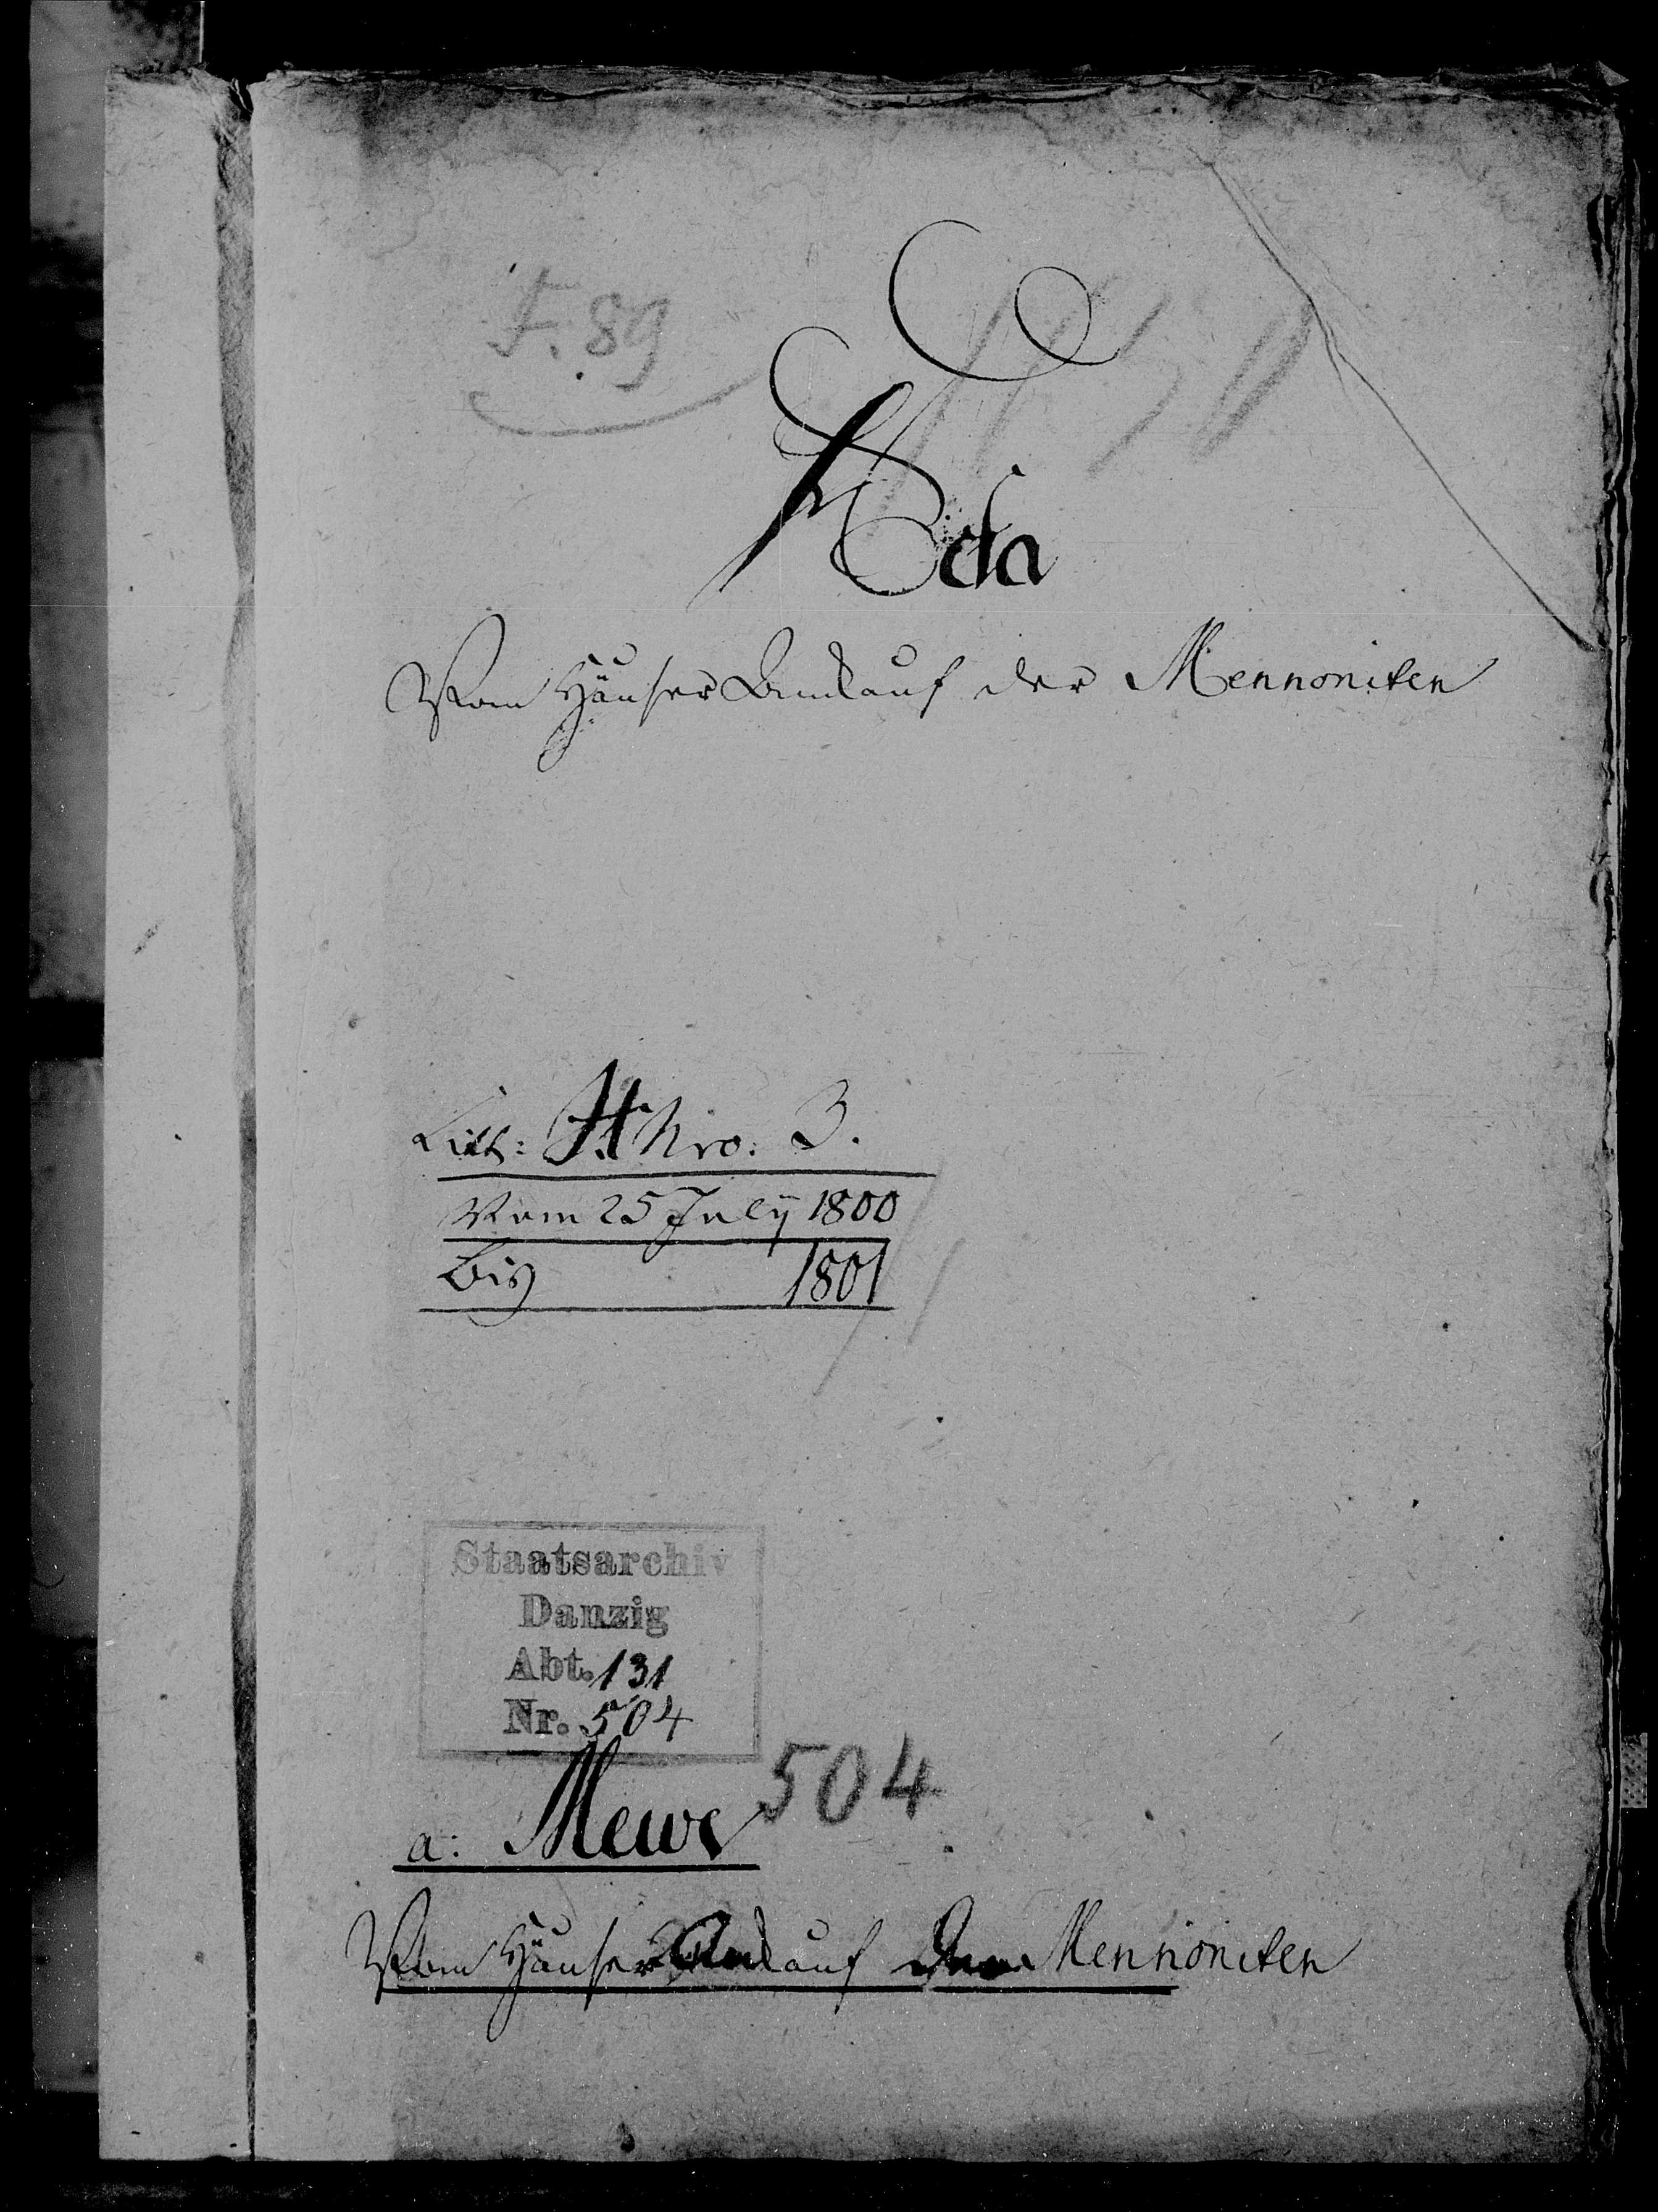 F. 89
Acta
Vom Häuser Ankauf der Mennoniten
Litt: H. Nro: 3.
Vom 25 July 1800
Bis 1801
Staatsarchiv
Danzig
Abt. 131
Nr. 504
504
a: Mewe
Vom Häuser Ankauf der Mennoniten